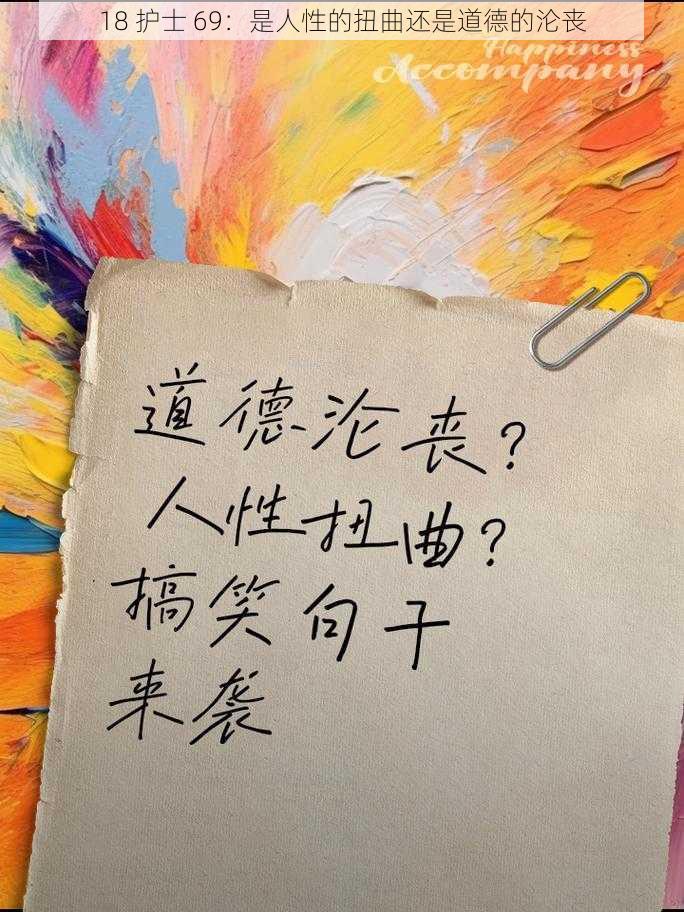 18 护士 69：是人性的扭曲还是道德的沦丧
Happiness
Accompany
道德沦丧？
人性扭曲？
搞笑句子
来袭